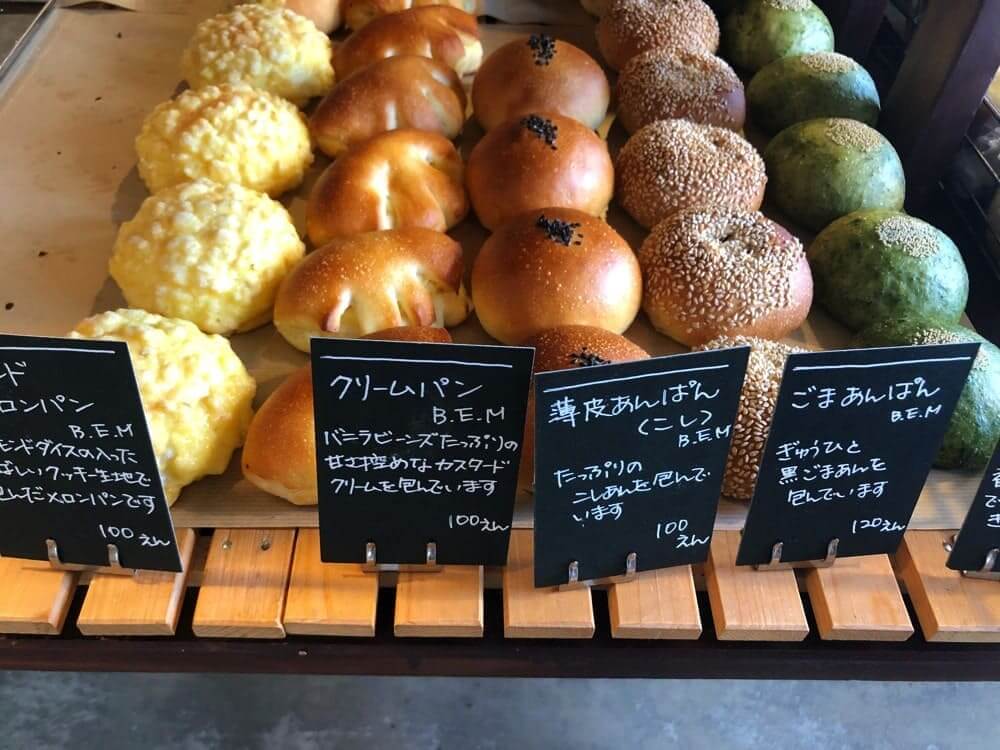 ド
ロンパン
B.E.M
モンドダイスの入った
ばしいクッキー生地で
包んだメロンパンです
100えん
クリームパン
B.E.M
バニラビーンズたっぷりの
甘さ控めなカスタード
クリームを包んでいます
100えん
薄皮あんぱん
(こし)
B.E.M
たっぷりの
こしあんを包んで
います
100
えん
ごまあんぱん
B.E.M
ぎゅうひと
黒ごまあんを
包んでいます
120えん